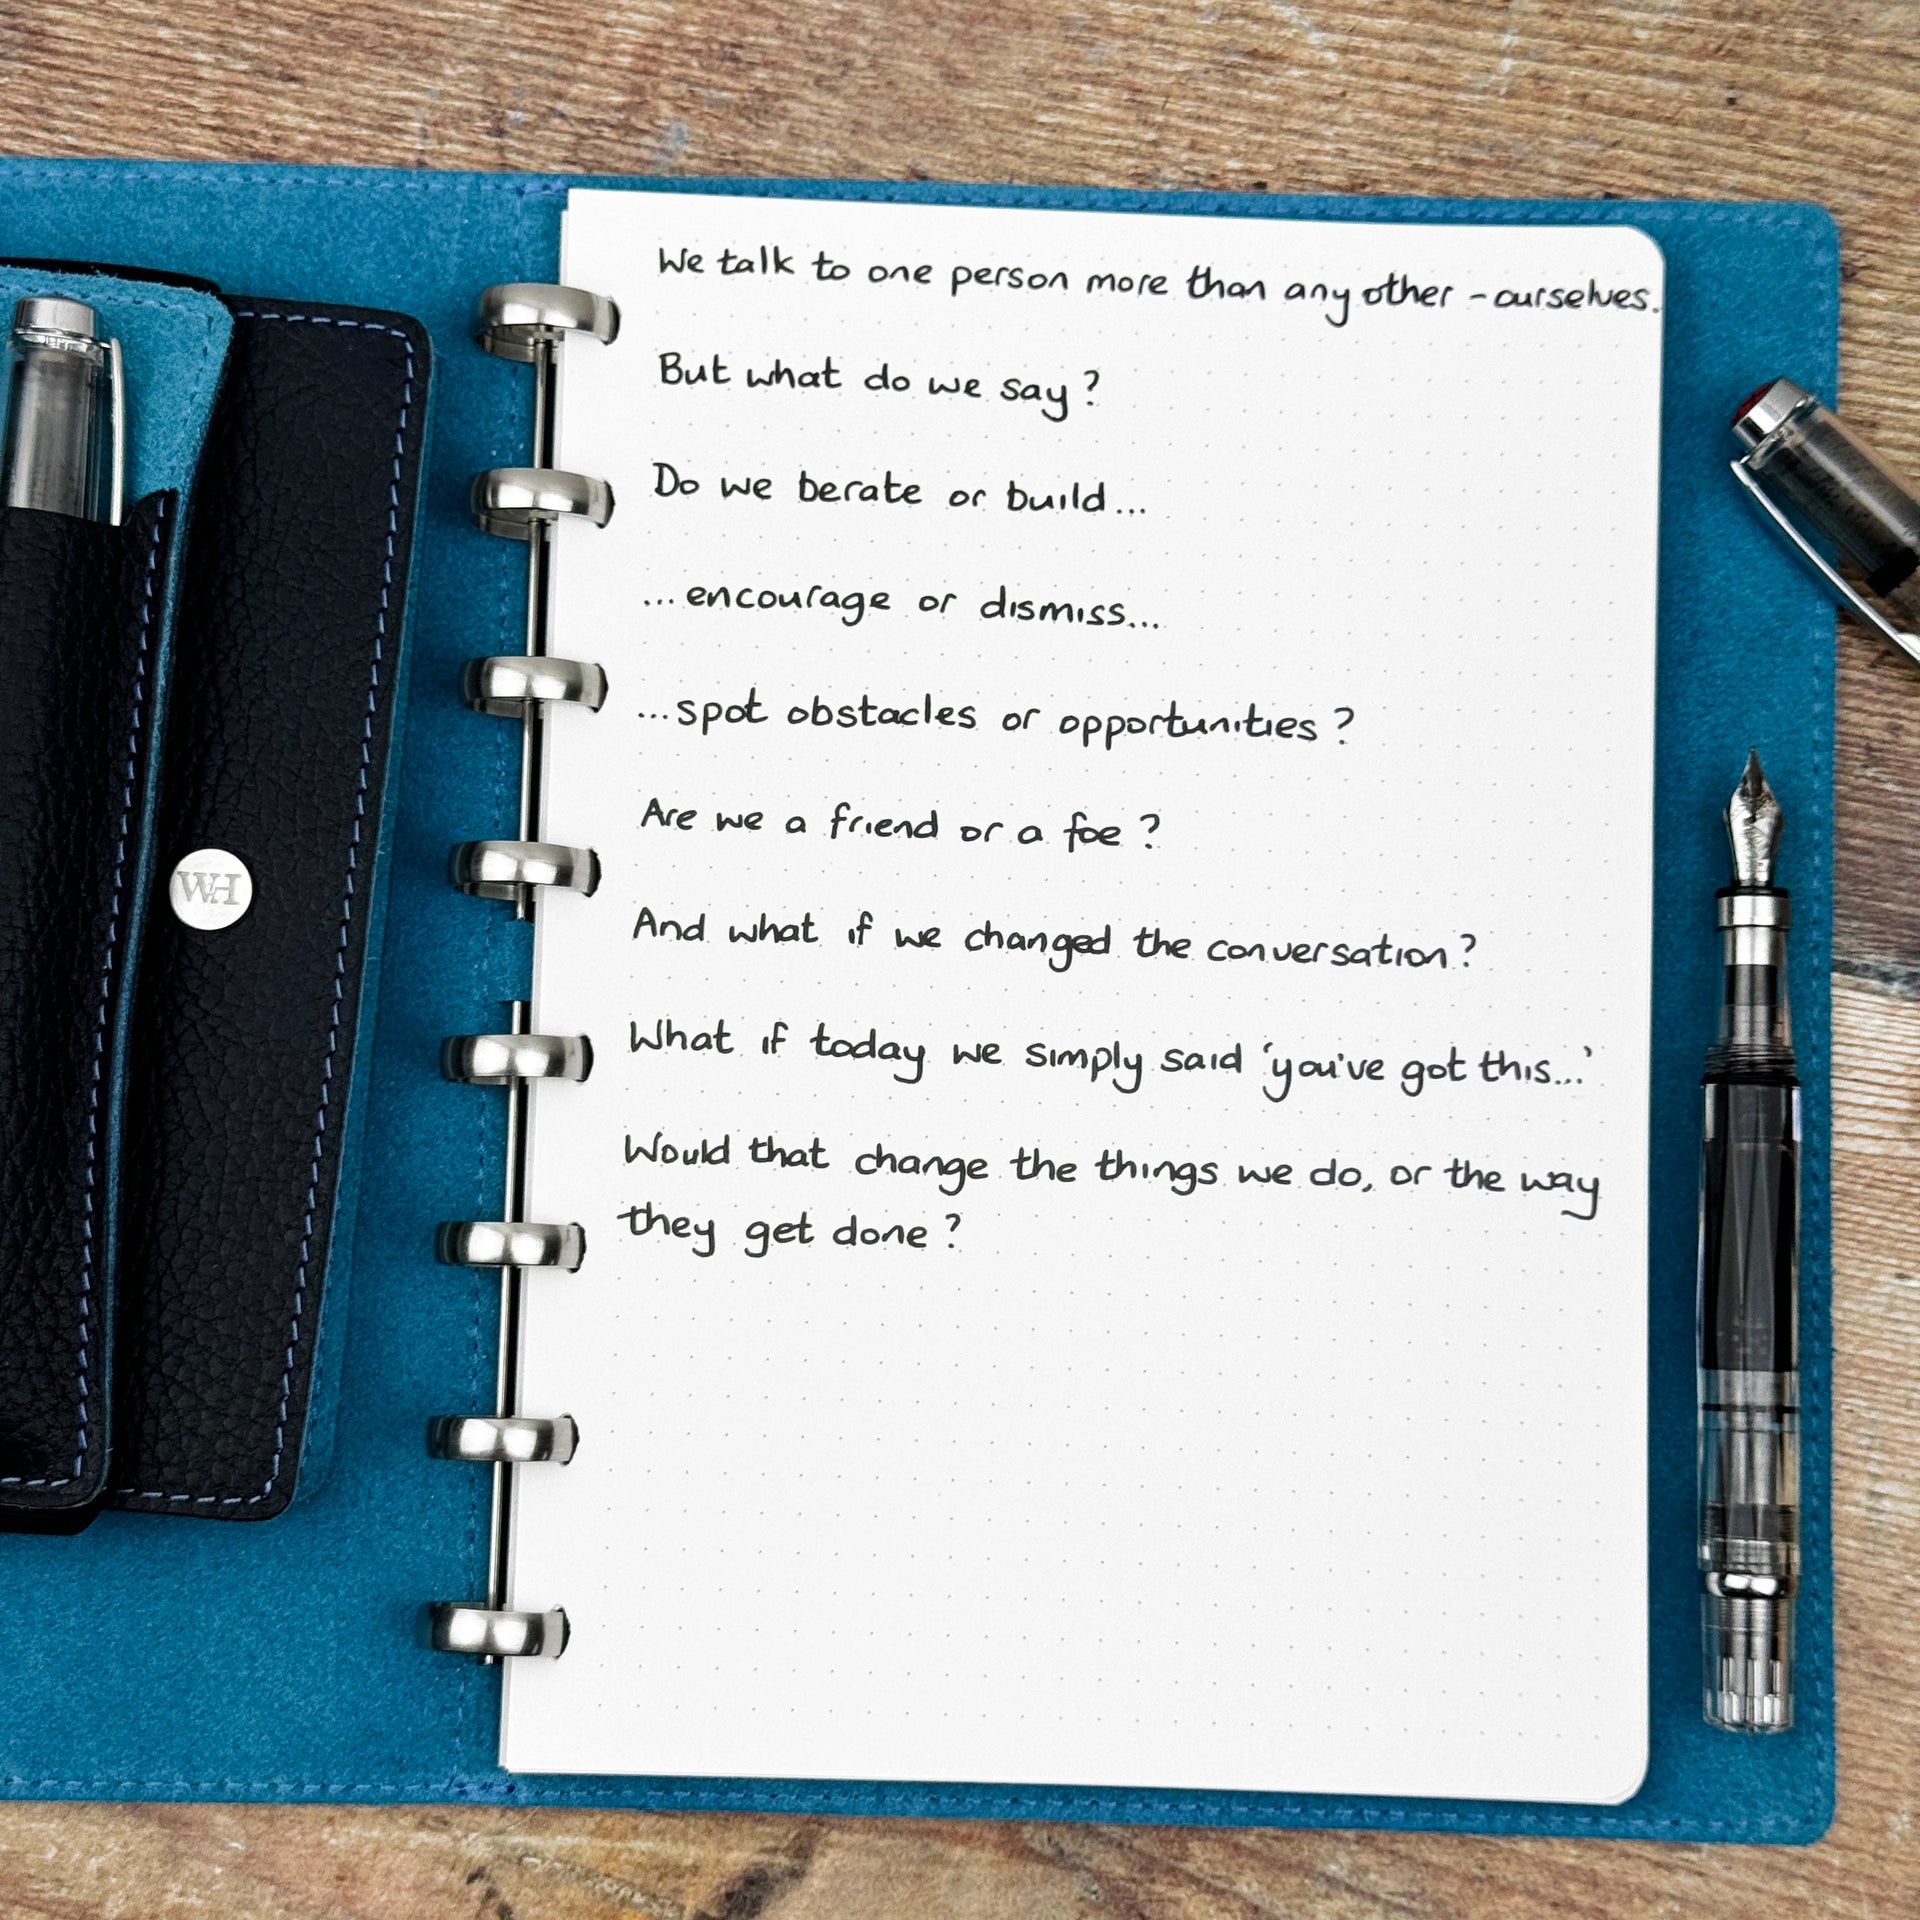 We talk to one person more than any other - ourselves.
But what do we say?
Do we berate or build...
...encourage or dismiss...
...spot obstacles or opportunities?
Are we a friend or a foe?
And what if we changed the conversation?
What if today we simply said 'you've got this...'
Would that change the things we do, or the way
they get done?
WH